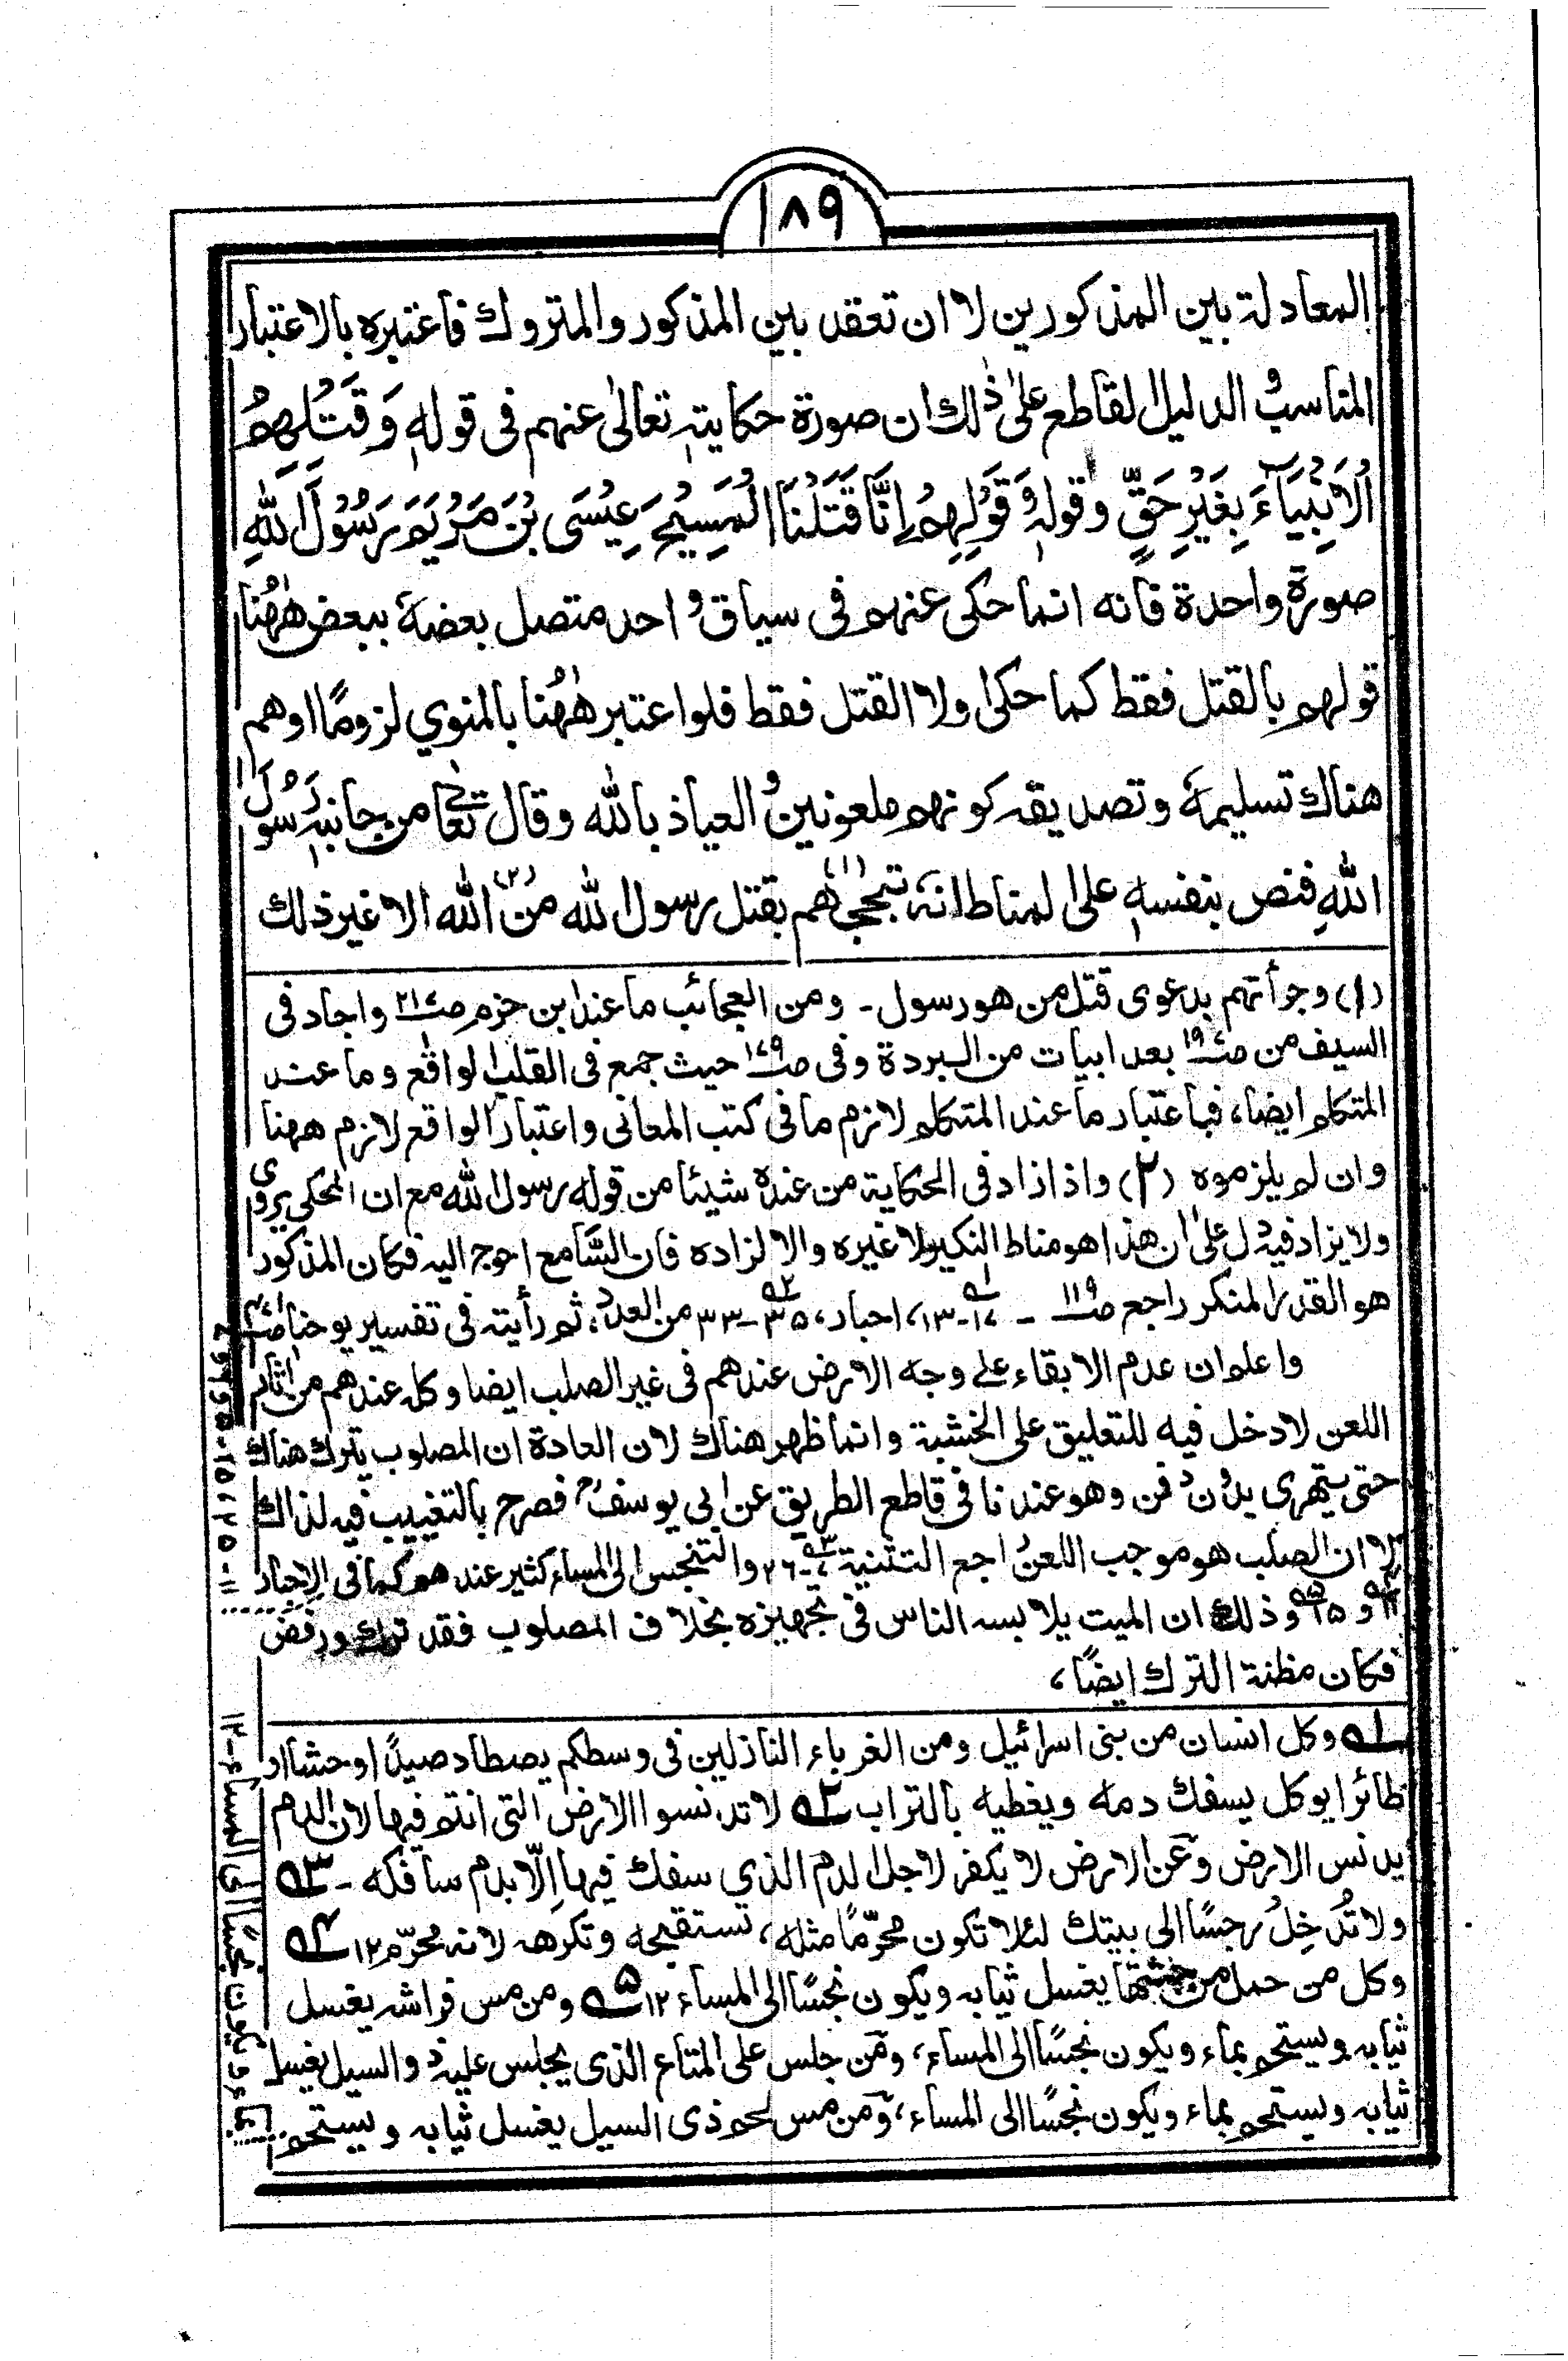 ١٨٩
المعادلة بين المذكورين لا ان تعقد بين المذكور والمتروك فاعتبره بالاعتبار
المناسب والدليل القاطع علىٰ ذٰلك ان صورة حكايته تعالىٰ عنهم فى قوله وَقَتْلَهِمُ
الْاَنْبِيَآءَ بِغَيْرِ حَقٍّ وقوله وَقَوْلِهِمْ اِنَّا قَتَلْنَا الْمَسِيْحَ عِيْسَى بْنَ مَرْيَمَ رَسُوْلَ اللهِ
صورة واحدة فانه انما حكى عنهم فى سياق واحد متصل بعضه ببعض هٰهُنا
قولهم بالقتل فقط كما حكى اولا القتل فقط فلو اعتبر هٰهُنا بالمنوي لزومًا اوهم
هناك تسليمه وتصديقه كونهم ملعونين والعياذ بالله وقال تعالىٰ من جانبه رَسُوْلَ
اللهِ فنص بنفسه على المناط انه تبجحهم (١) بقتل رسول الله من (٢) الله لا غير ذلك
(١) وجرأتهم بدعوى قتل من هو رسول ـ ومن العجائب ما عند ابن حزم ص٢١٧ واجاد فى
السيف من ص١٩ بعد ابيات من البردة وفى ص١٧٩ حيث جمع فى القلب الواقع وما عند
المتكلم ايضا، فباعتبار ما عند المتكلم لازم ما فى كتب المعانى واعتبار الواقع لازم ههنا
وان لم يلزموه (٢) واذا زاد فى الحكاية من عنده شيئا من قوله رسول الله مع ان المحكى يروى
ولا يزاد فيه دل علىٰ ان هذا هو مناط النكير لا غيره والا لزاده فان السامع احوج اليه فكان المذكور
هو القدر المنكر راجع ص١١٩ ـ ١٧ـ١٣، احبار، ٣٥ـ٣٣ من العدد، ثم رأيته فى تفسير يوحنا
واعلم ان عدم الابقاء على وجه الارض عندهم فى غير الصلب ايضا وكل عندهم من اثار
اللعن لا دخل فيه للتعليق على الخشبة وانما ظهر هناك لان العادة ان المصلوب يترك هناك
حتى يتهرى بدون دفن وهو عندنا فى قاطع الطريق عن ابى يوسفؒ فصرح بالتغييب فيه لذاك
لا ان الصلب هو موجب اللعن راجع التثنية ٧ـ٢٦ والتنجس الى المساء كثير عندهم كما فى الاحبار
و ١٥ وذلك ان الميت يلابسه الناس فى تجهيزه بخلاف المصلوب فقد ترك ورفض
فكان مظنة الترك ايضًا،
١ـه وكل انسان من بنى اسرائيل ومن الغرباء النازلين فى وسطكم يصطاد صيدًا وحشا او
طائرا يوكل يسفك دمه ويغطيه بالتراب ٢ـه لا تدنسوا الارض التى انتم فيها لان الدم
يدنس الارض وَعَن الارض لا يكفر لاجل الدم الذي سفك فيها اِلّا بدم سافكه ـ ٣ـه
ولا تُدخِلُ رجسًا الى بيتك لئلا تكون محرّمًا مثله، تستقبحه وتكرهه لانه محرّم ١٢ ٤ـه
وكل من حمل من جثتها يغسل ثيابه ويكون نجسًا الى المساء ١٢ ٥ـه ومن مس فراشه يغسل
ثيابه ويستحم بماء ويكون نجسًا الى المساء، ومن جلس على المتاع الذى يجلس عليه ذو السيل يغسل
ثيابه ويستحم بماء ويكون نجسًا الى المساء، وَمن مس لحم ذى السيل يغسل ثيابه ويستحم
بماء ويكون نجسًا الى المساء ـ ١٢